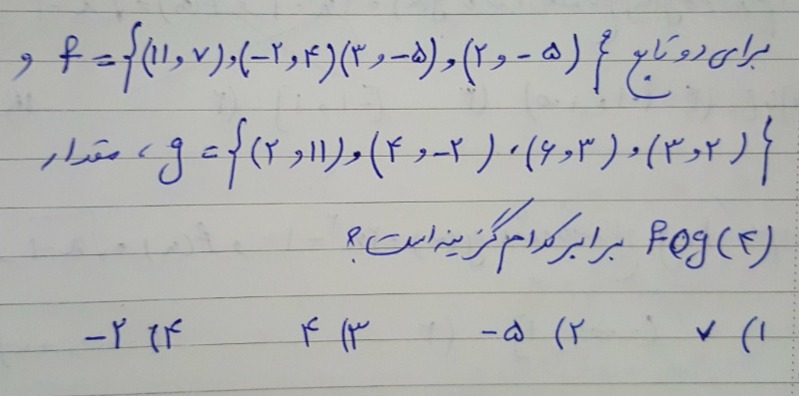 برای دو تابع f = {(۱۱,۷),(-۲,۴)(۳,-۵),(۲,-۵)} و
g = {(۲,۱۱),(۴,-۲),(۶,۳),(۳,۲)} ، مقدار
fog(۴) برابر کدام گزینه است؟
۱) ۷ ۲) -۵ ۳) ۴ ۴) -۲